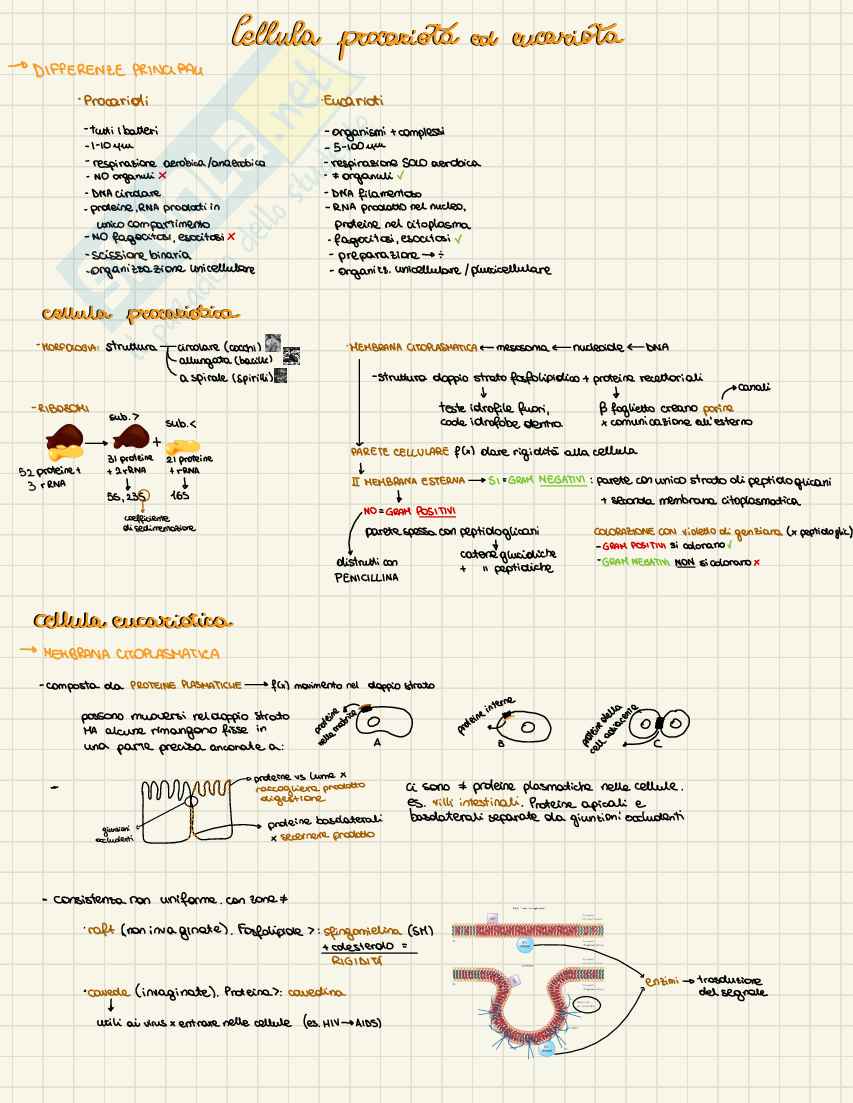 Cellula procariota ed eucariota
→ DIFFERENZE PRINCIPALI
· Procarioti
- tutti i batteri
- 1-10 μm
- respirazione aerobica/anaerobica
- NO organuli ×
- DNA circolare
- proteine, RNA prodotti in
unico compartimento
- NO fagocitosi, esocitosi ×
- scissione binaria
- organizzazione unicellulare
· Eucarioti
- organismi + complessi
- 5-100 μm
- respirazione SOLO aerobica
- ≠ organuli ✓
- DNA filamentoso
- RNA prodotto nel nucleo,
proteine nel citoplasma
- fagocitosi, esocitosi ✓
- preparazione → ÷
- organizz. unicellulare / pluricellulare
cellula procariotica
- MORFOLOGIA: struttura
circolare (cocchi)
allungata (bacilli)
a spirale (spirilli)
- RIBOSOMI
sub. >
sub. <
→ + 
52 proteine +
3 rRNA
31 proteine
+ 2 rRNA
21 proteine
+ rRNA
5S, 23S
16S
coefficiente
di sedimentazione
· MEMBRANA CITOPLASMATICA ← mesosoma ← nucleoide ← DNA
- struttura doppio strato fosfolipidico + proteine recettoriali
canali
teste idrofile fuori,
code idrofobe dentro
β foglietto creano porine
x comunicazione all'esterno
PARETE CELLULARE f(x) dare rigidità alla cellula
II MEMBRANA ESTERNA → SI = GRAM NEGATIVI : parete con unico strato di peptidoglicani
+ seconda membrana citoplasmatica
NO = GRAM POSITIVI
parete spessa con peptidoglicani
distrutti con
PENICILLINA
catene glucidiche
+ " peptidiche
COLORAZIONE CON violetto di genziana (x peptidoglic)
- GRAM POSITIVI si colorano ✓
- GRAM NEGATIVI NON si colorano ×
Cellula eucariotica
→ MEMBRANA CITOPLASMATICA
- composta da PROTEINE PLASMATICHE → f(x) movimento nel doppio strato
possono muoversi nel doppio strato
MA alcune rimangono fisse in
una parte precisa ancorate a:
proteine
nella matrice
A
proteine interne
B
proteine della
cell. adiacente
C
-
giunzioni
occludenti
proteine vs lume x
raccogliere prodotto
digestione
proteine basolaterali
x secernere prodotto
Ci sono ≠ proteine plasmatiche nelle cellule.
es. villi intestinali. Proteine apicali e
basolaterali separate da giunzioni occludenti
- consistenza non uniforme, con zone ≠
· raft (non invaginate). Fosfolipide >: sfingomielina (SM)
+ colesterolo =
RIGIDITÀ
· caveole (invaginate). Proteina >: caveolina
utili ai virus x entrare nelle cellule (es. HIV → AIDS)
enzimi → trasduzione
del segnale